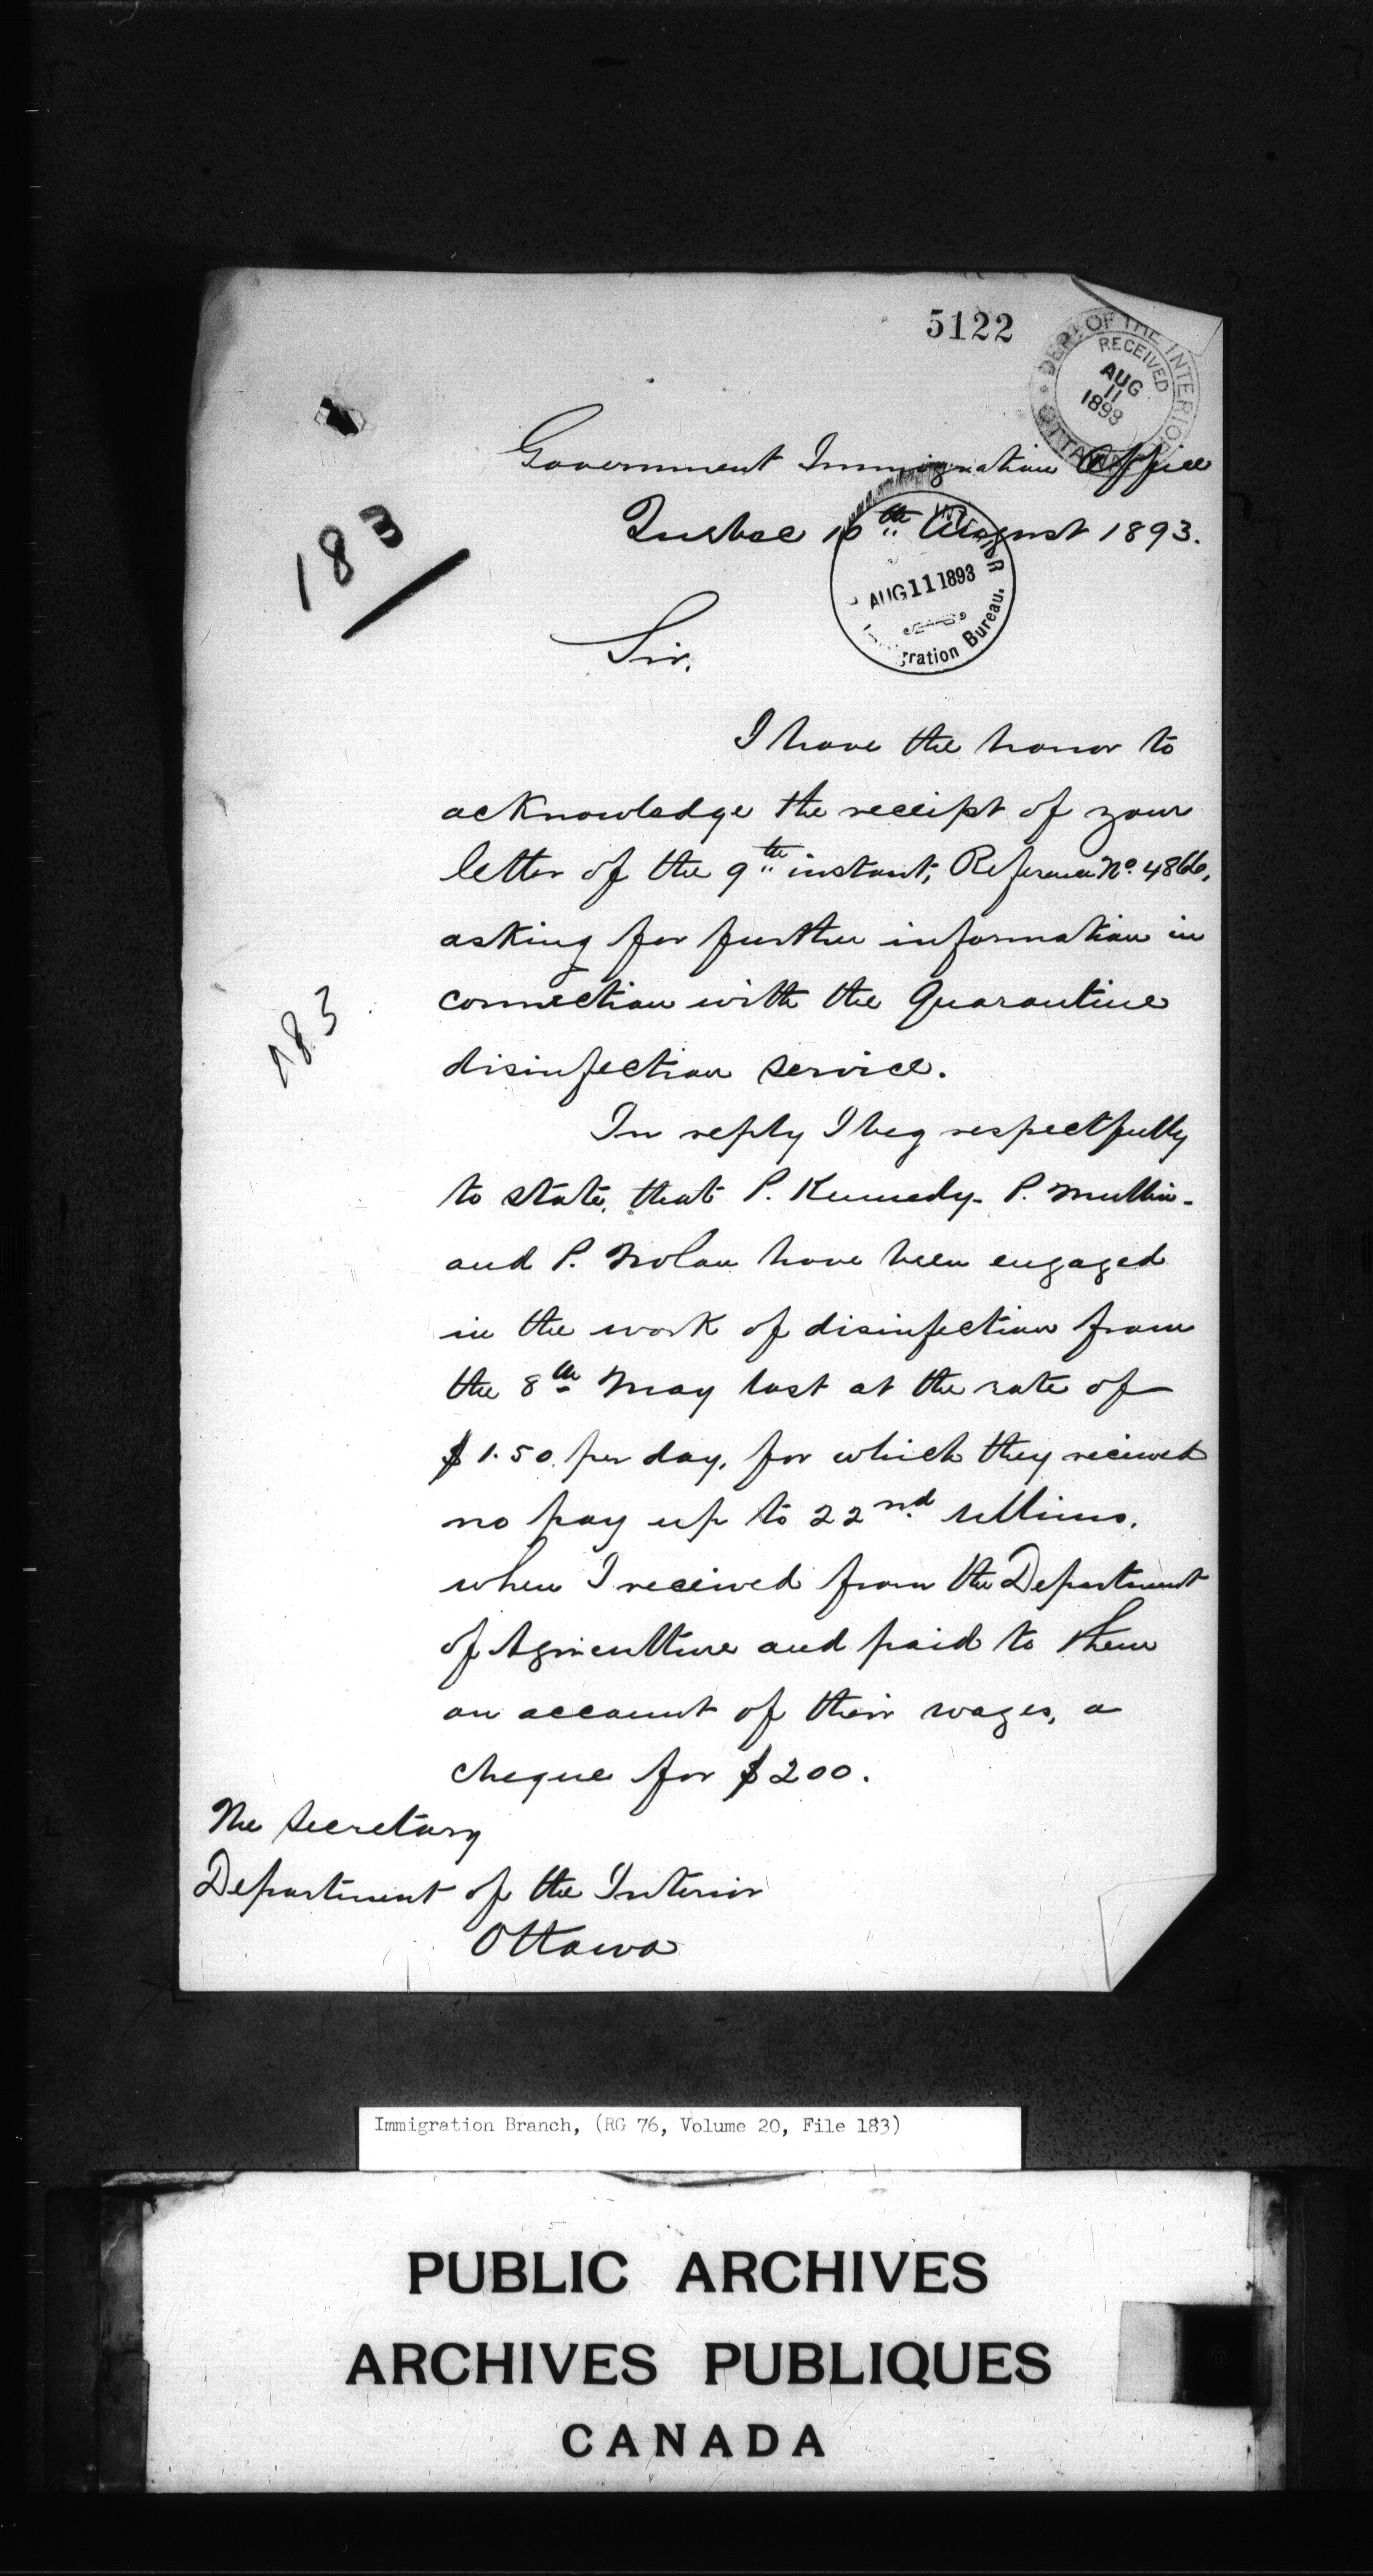 5122
DEPT. OF THE INTERIOR
RECEIVED
AUG
11
1893
OTTAWA
Government Immigration Office
Quebec 10th August 1893.
INTERIOR
AUG 11 1893
Immigration Bureau.
183
Sir,
I have the honor to
acknowledge the receipt of your
letter of the 9th instant, Reference No. 4866,
asking for further information in
connection with the Quarantine
183
disinfection service.
In reply I beg respectfully
to state, that P. Kennedy - P. Mullin -
and P. Nolan have been engaged
in the work of disinfection from
the 8th May last at the rate of
$1.50 per day, for which they received
no pay up to 22nd Ultimo,
when I received from the Department
of Agriculture and paid to them
on account of their wages, a
cheque for $200.
The Secretary
Department of the Interior
Ottawa
Immigration Branch, (RG 76, Volume 20, File 183)
PUBLIC ARCHIVES
ARCHIVES PUBLIQUES
CANADA